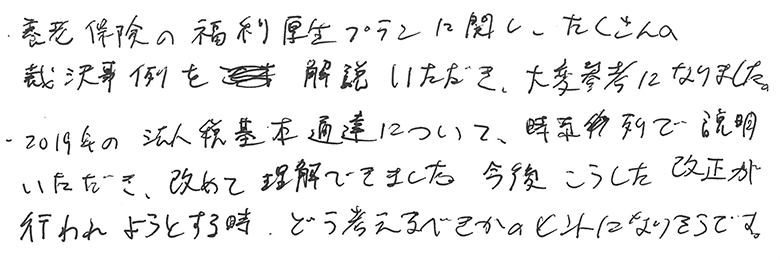 ・養老保険の福利厚生プランに関し、たくさんの
裁決事例を 解説いただき、大変参考になりました。
・2019年の法人税基本通達について、時系列で説明
いただき、改めて理解できました。今後こうした改正が
行われようとする時、どう考えるべきかのヒントになりそうです。